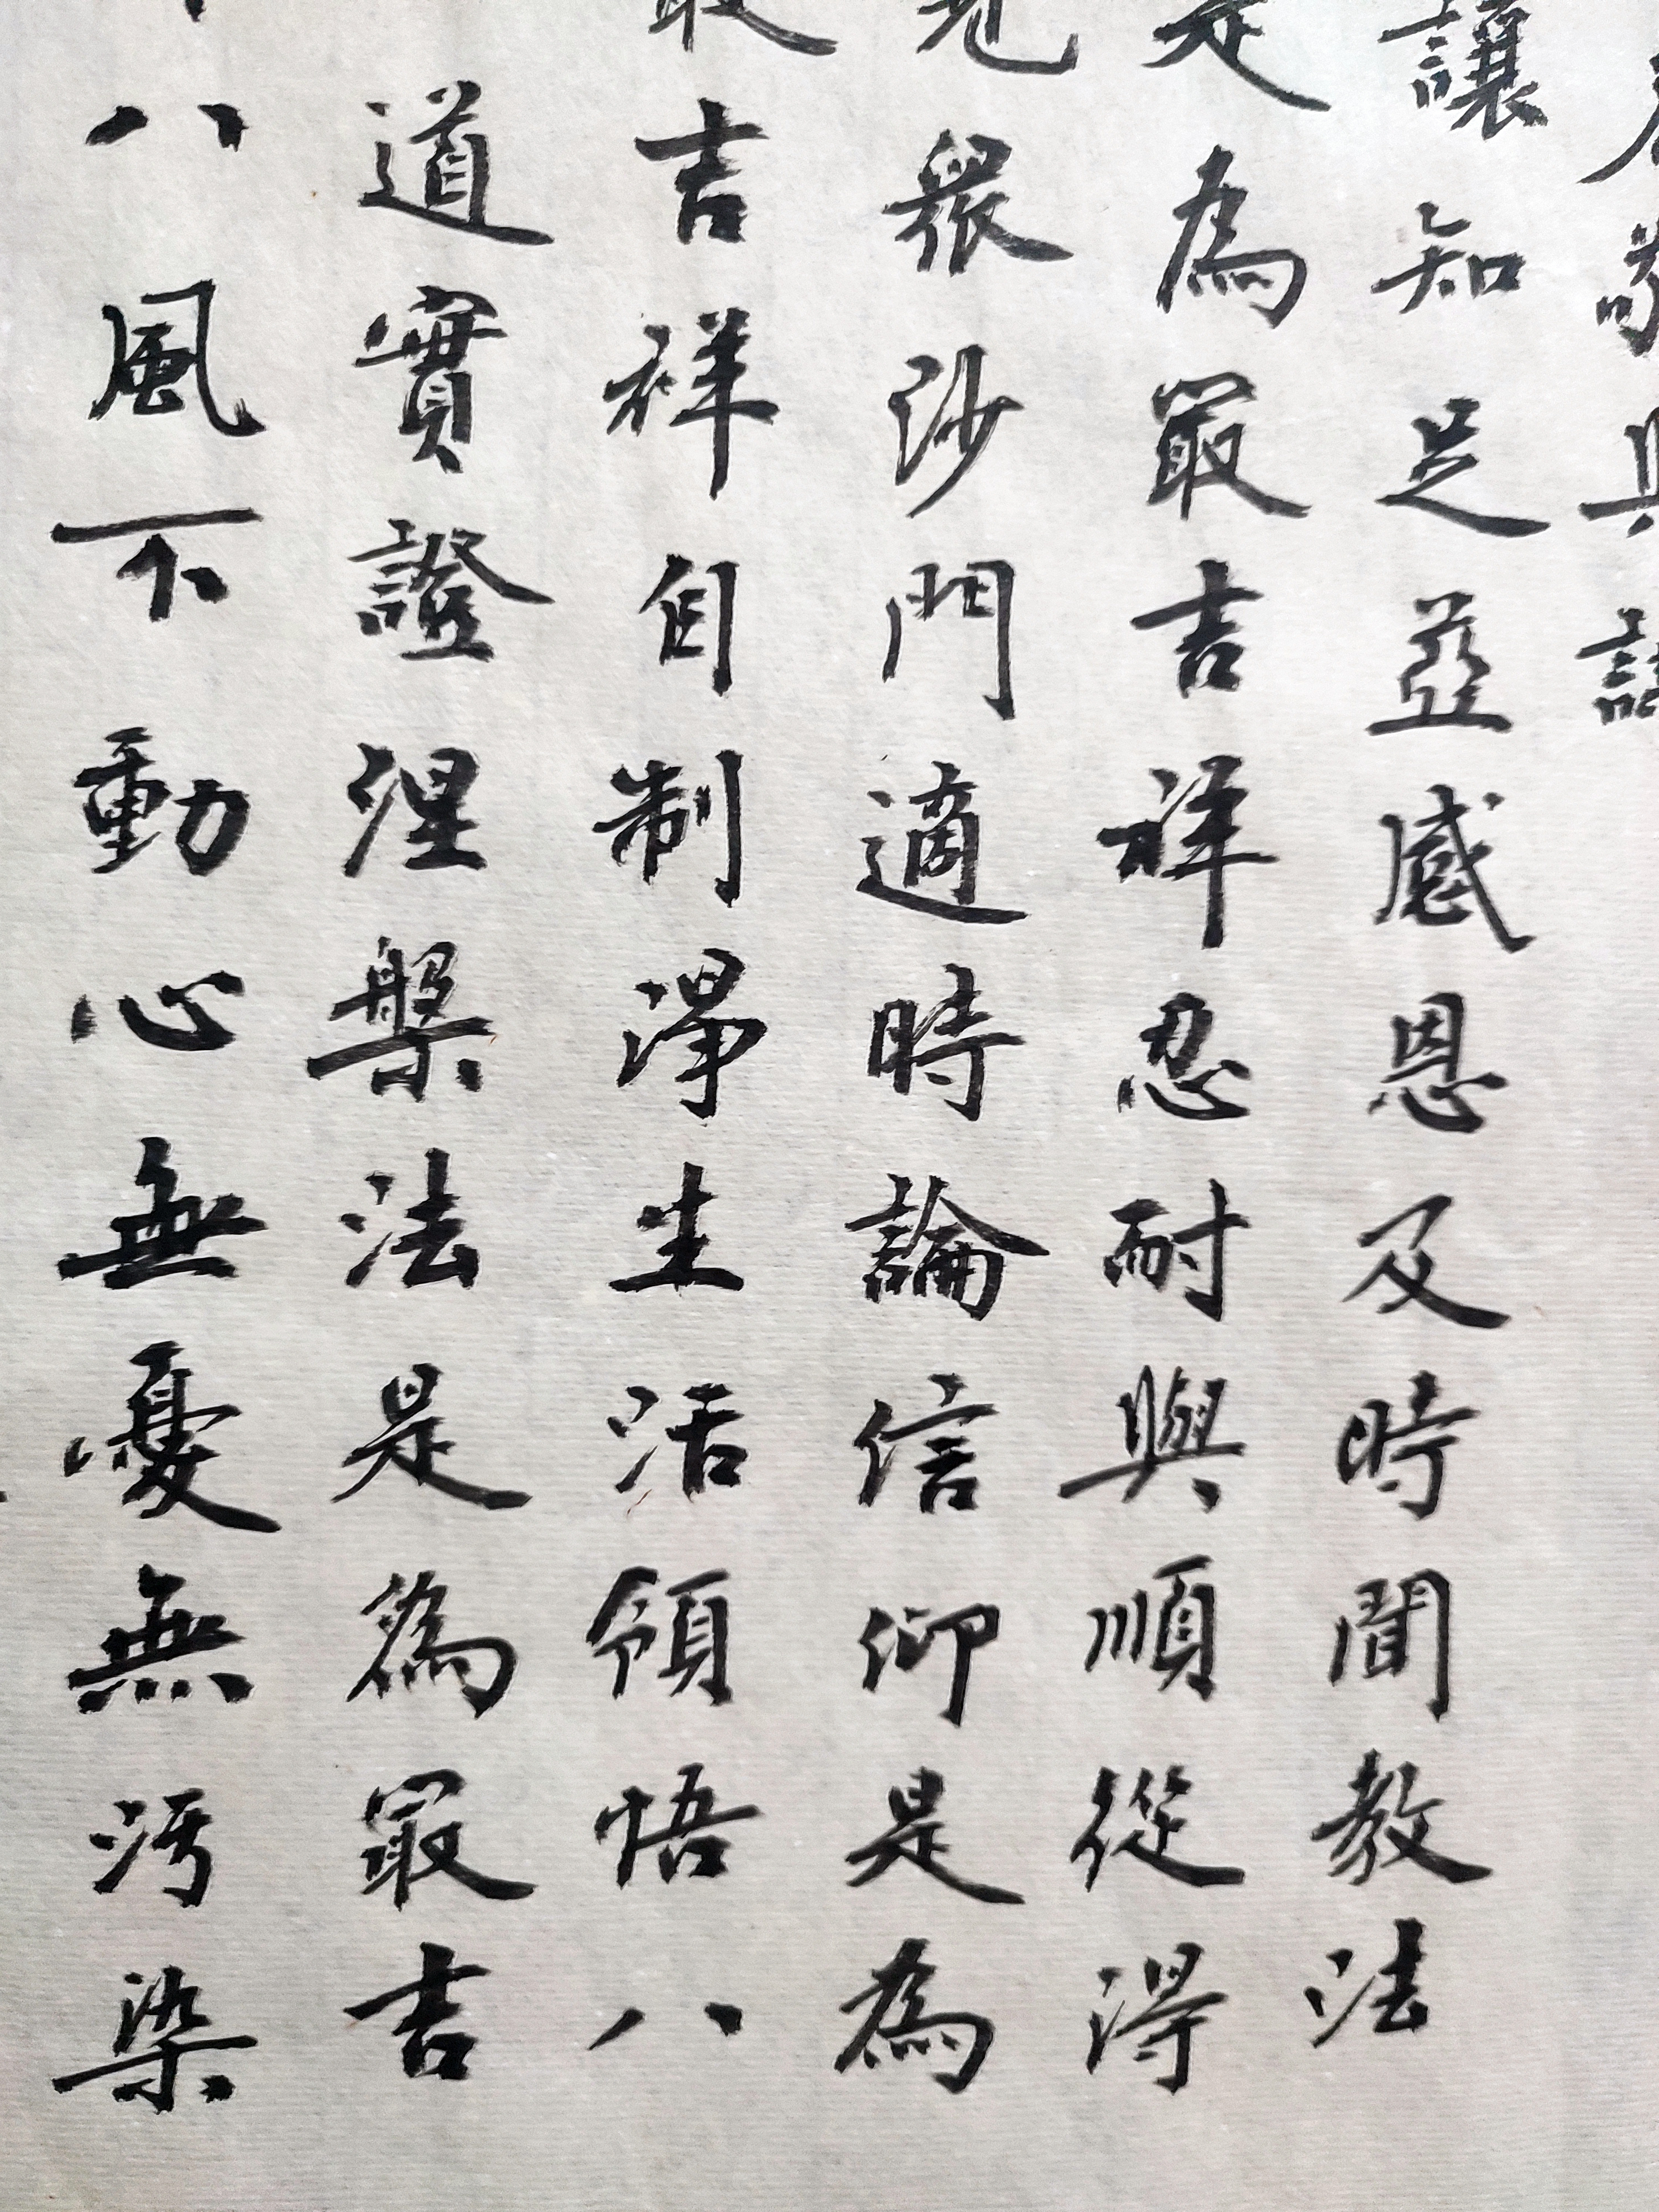 敬與謙
讓知足並感恩及時聞教法
是為最吉祥忍耐與順從得
見眾沙門適時論信仰是為
最吉祥自制淨生活領悟八
道實證涅槃法是為最吉
八風不動心無憂無污染